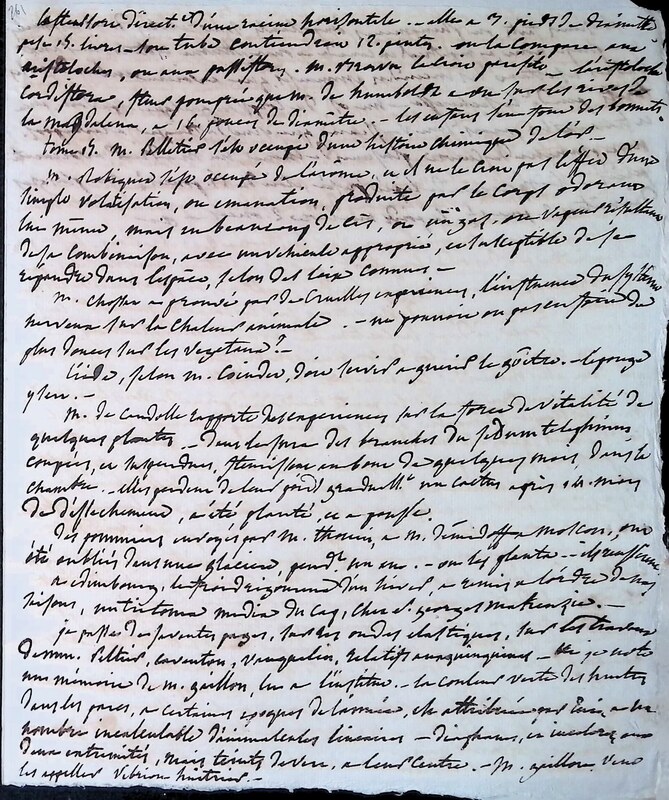 261
la fleur sort direct.t d'une racine horisontale. - elle a 3. pieds de diamètre
pese 15. livres - son tube contiendrait 12. pintes. on la compare aux
aristoloches, ou aux passiflores. m. Brown la croit parasite - l'aristoloche
cordiflora, fleur pourprée que m. de humboldt a vu sur les rives de
la Magdalena, a 16 pouces de diamètre. - les enfans s'en font des bonnets.
tome 15. m. Pelletier s'est occupé d'une histoire chimique de l'or -
m. Robiquet s'est occupé de l'arôme, et il ne le croit pas l'effet d'une
simple volatilisation, ou emanation, produite par le corps odorant
lui même, mais en beaucoup de cas, ou un gaz, ou vapeur résultant
de sa combinaison, avec un vehicule approprié, et susceptible de se
repandre dans l'espace, selon des loix connues. -
m. chossat a prouvé par de cruelles experiences, l'influence du systême
nerveux sur la chaleur animale. - ne pouvoit on pas en faire de
plus douces sur les vegetaux ? -
l'iode, selon m. Coindet, doit servir a guerir le goître. - l'eponge
y sert. -
m. de candolle rapporte des experiences sur la force de vitalité de
quelques plantes. - dans le nombre des branches du sedum telephium
coupées, et suspendues, fleurissent au bout de quelques mois, dans la
chambre. - elles perdent de leur poids graduell.t un cactus après 14. mois
de dessechement, a été planté, et a poussé.
des pommiers envoyés par m. thouin, a m. demidoff a Moscou, ont
été oubliés dans une glacière, pend.t un an. - on les plante - ils reussissent
a edimbourg, le froid rigoureux d'un hiver, a remis a l'ordre de nos
saisons, un tritoma media du Cap, chez sr. georges makenzie. -
je passe de savantes pages, sur les ondes elastiques, sur les travaux
de mm. Pelletier, caventou, vauquelin, relatifs aux quinquinas - je note
un mémoire de m. gaillon, lu a l'institut. - la couleur verte des huitres
dans les parcs, a certaines epoques de l'année, est attribuée par lui, a un
nombre incalculable d'animalcules linéaires - diaphanes, et incolores aux
deux extremités, mais teints de verd, a leur centre. - M. gaillon veut
les appeller vibrions huitriers. -